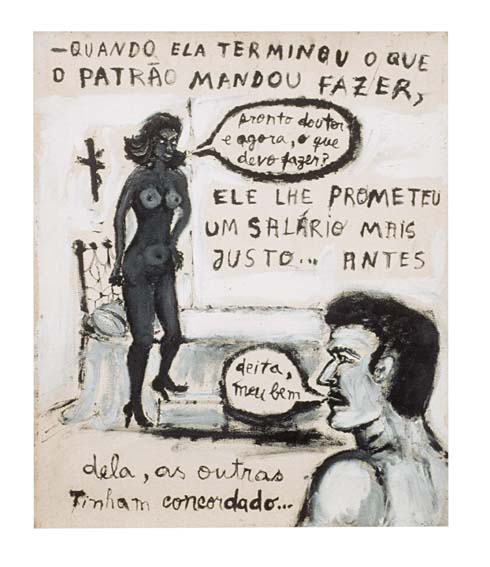 -QUANDO ELA TERMINOU O QUE
O PATRÃO MANDOU FAZER,
pronto doutor
e agora, o que
devo fazer?
ELE LHE PROMETEU
UM SALÁRIO MAIS
JUSTO... ANTES
deita,
meu bem
dela, as outras
Tinham concordado...